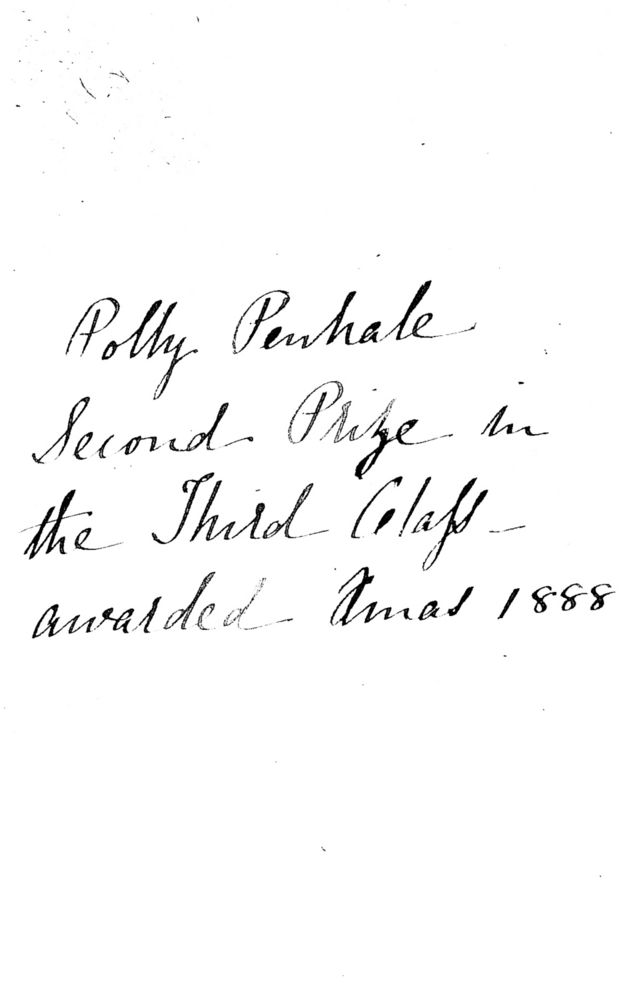 Polly Penhale
Second Prize in
the Third Claſs –
awarded Xmas 1888